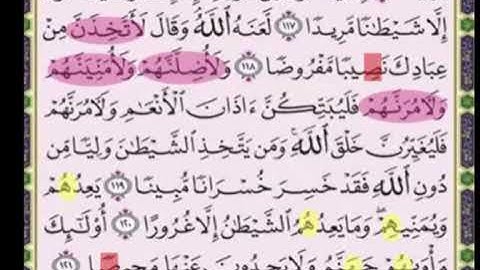 إِلَّا شَيْطَٰنًا مَّرِيدًا ١١٧ لَّعَنَهُ ٱللَّهُ وَقَالَ لَأَتَّخِذَنَّ مِنْ
عِبَادِكَ نَصِيبًا مَّفْرُوضًا ١١٨ وَلَأُضِلَّنَّهُمْ وَلَأُمَنِّيَنَّهُمْ
وَلَءَامُرَنَّهُمْ فَلَيُبَتِّكُنَّ ءَاذَانَ ٱلْأَنْعَٰمِ وَلَءَامُرَنَّهُمْ
فَلَيُغَيِّرُنَّ خَلْقَ ٱللَّهِ ۚ وَمَن يَتَّخِذِ ٱلشَّيْطَٰنَ وَلِيًّا مِّن
دُونِ ٱللَّهِ فَقَدْ خَسِرَ خُسْرَانًا مُّبِينًا ١١٩ يَعِدُهُمْ
وَيُمَنِّيهِمْ ۖ وَمَا يَعِدُهُمُ ٱلشَّيْطَٰنُ إِلَّا غُرُورًا ١٢٠ أُو۟لَٰٓئِكَ
مَأْوَىٰهُمْ جَهَنَّمُ وَلَا يَجِدُونَ عَنْهَا مَحِيصًا ١٢١